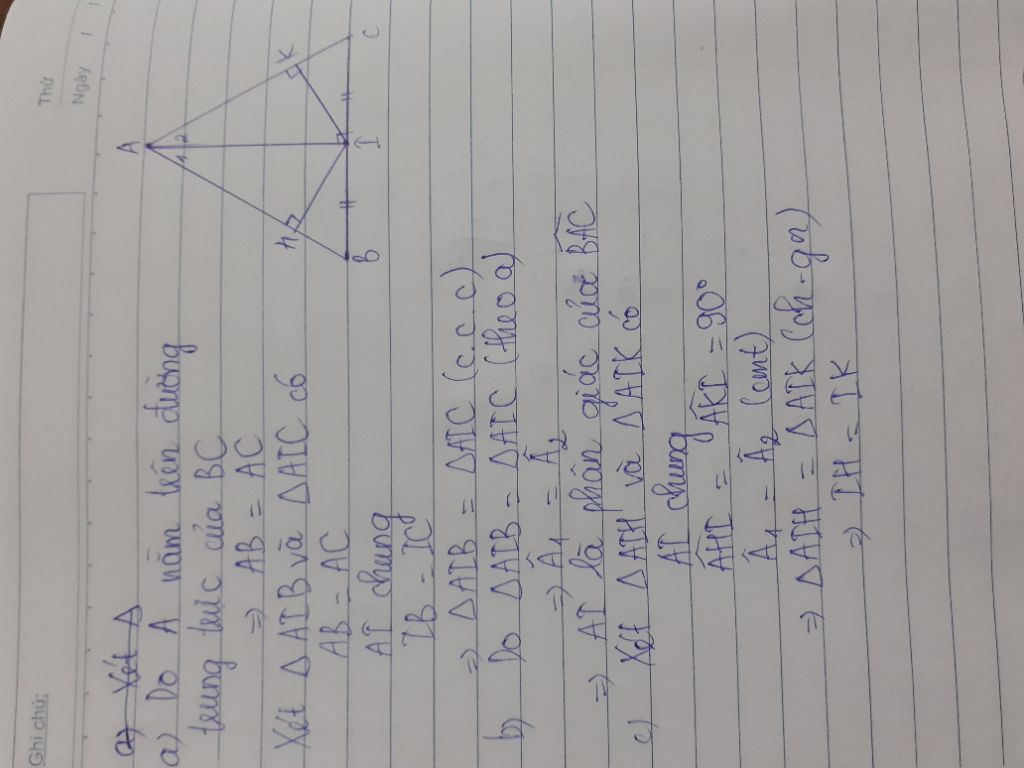 Ghi chú:
Thứ
Ngày
a) Xét Δ
a) Do A nằm trên đường
trung trực của BC
⇒ AB = AC
Xét Δ AIB và Δ AIC có
AB = AC
AI chung
IB = IC
⇒ Δ AIB = Δ AIC (c.c.c)
b) Do Δ AIB = Δ AIC (theo a)
⇒ Â1 = Â2
⇒ AI là phân giác của BAC
c) Xét Δ AIH và Δ AIK có
AI chung
AHI = AKI = 90°
Â1 = Â2 (cmt)
⇒ Δ AIH = Δ AIK (ch-gn)
⇒ IH = IK
A
1 2
H
K
B
I
C